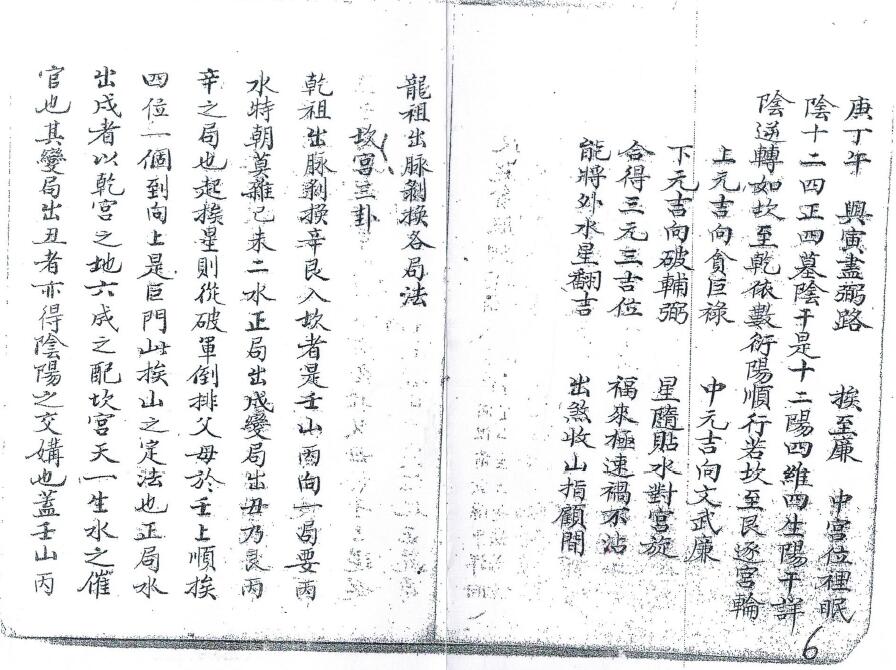 庚丁午　與寅盡弼路　挨至廉　中宮位裡眠
陰十二四正四墓陰干是十二陽四維四生陽干詳
陰逆轉如坎至乾依數衍陽順行若坎至艮逐宮輪
上元吉向貪巨祿　中元吉向文武廉
下元吉向破輔弼　星隨貼水對宮旋
合得三元三吉位　福來極速禍不沾
能將外水星翻吉　出煞收山指顧間
龍祖出脉剝換各局法
坎宮三卦
乾祖出脉剝換辛艮入坎者是壬山丙向一局要丙
水特朝莫雜己未二水正局出戌變局出丑乃艮丙
辛之局也起挨星則從破軍倒排父母於壬上順挨
四位一個到向上是巨門山挨山之定法也正局水
出戌者以乾宮之地六成之配坎宮天一生水之催
官也其變局出丑者亦得陰陽之交媾也蓋壬山丙
6